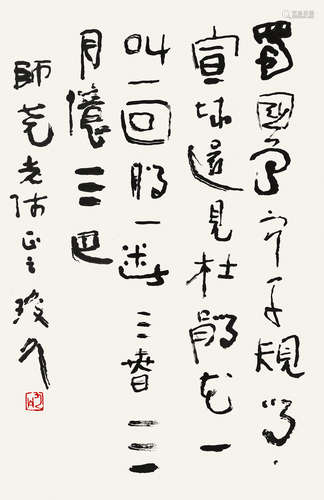 蜀國曾聞子規鳥
宣城還見杜鵑花一
叫一回腸一斷三春三
月憶三巴
師老师正之